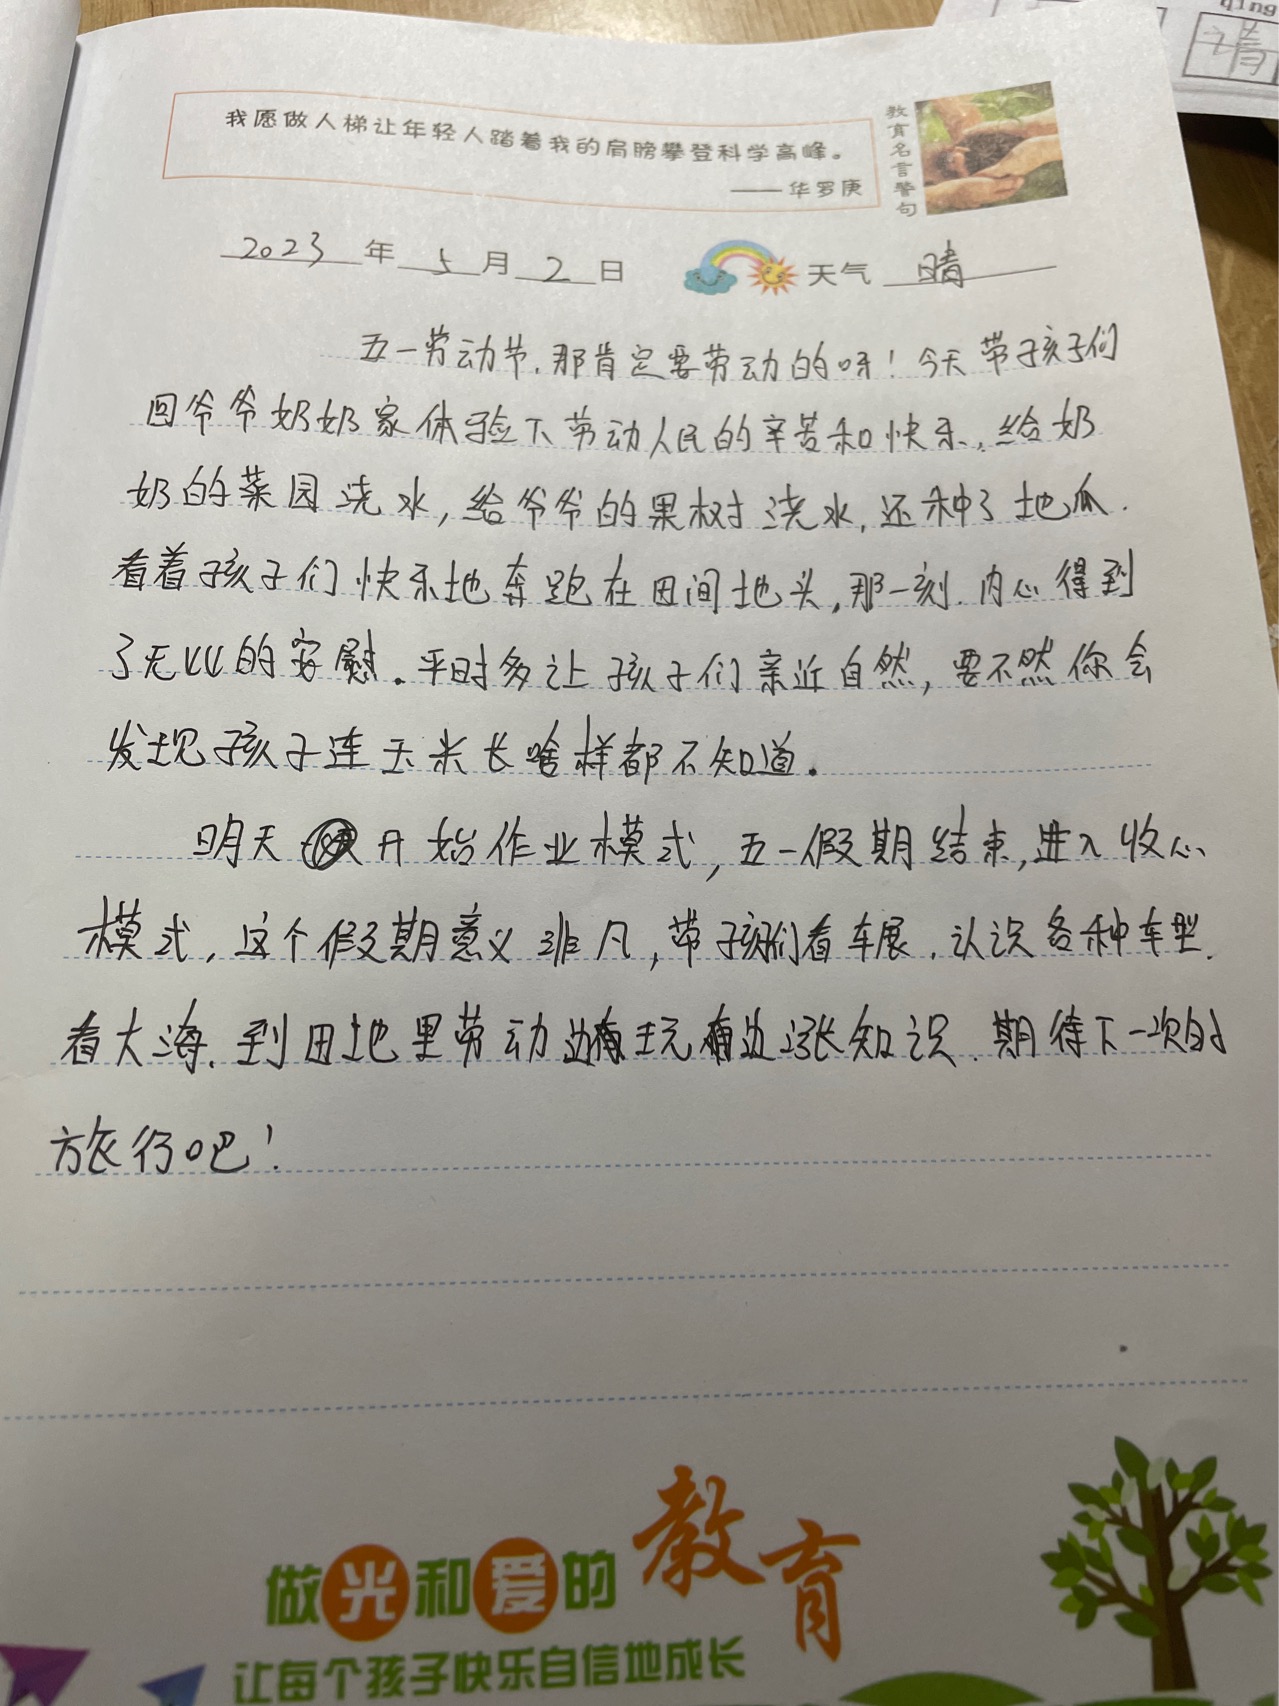 qing
晴
我愿做人梯让年轻人踏着我的肩膀攀登科学高峰。
——华罗庚
教育名言警句
2023年5月2日 天气 晴
五一劳动节,那肯定要劳动的呀!今天带孩子们
回爷爷奶奶家体验下劳动人民的辛苦和快乐,给奶
奶的菜园浇水,给爷爷的果树浇水,还种了地瓜.
看着孩子们快乐地奔跑在田间地头,那一刻.内心得到
了无比的安慰.平时多让孩子们亲近自然,要不然你会
发现孩子连玉米长啥样都不知道.
明天开始作业模式,五一假期结束,进入收心
模式,这个假期意义非凡,带孩子们看车展,认识各种车型.
看大海.到田地里劳动边玩边涨知识.期待下一次的
旅行吧!
做光和爱的教育
让每个孩子快乐自信地成长